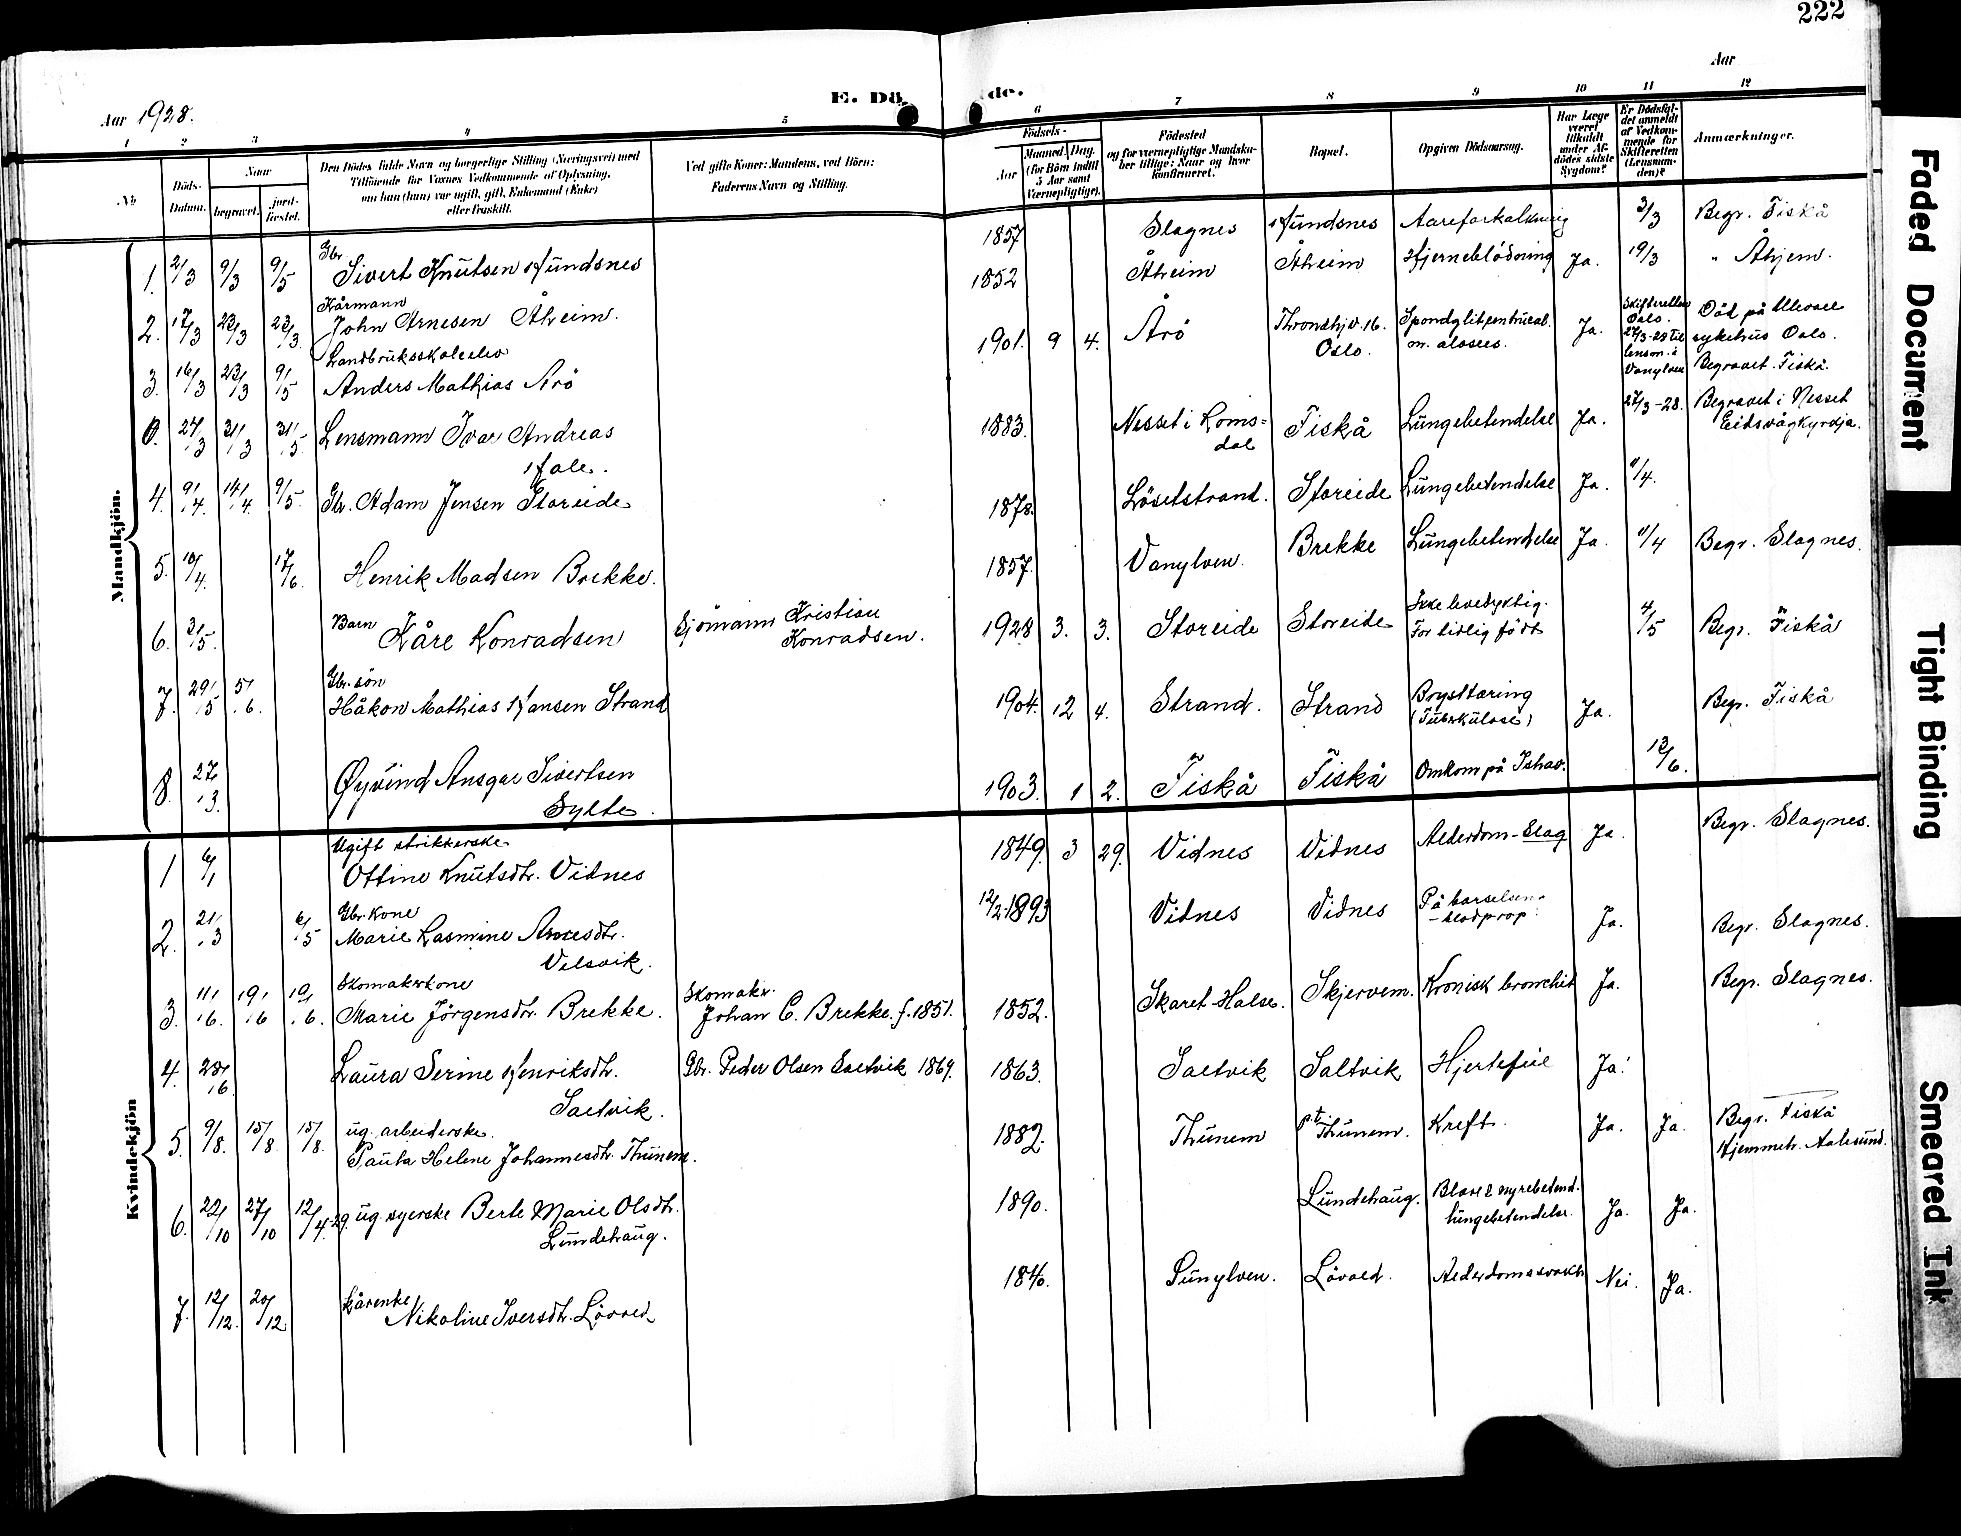 222
Aar 1928.
E. Dö de.
Aar
1 2 3 4 5 6 7 8 9 10 11 12
No
Döds-Datum.
Naar
begravet.
jord-fæstet.
Den Dödes fulde Navn og borgerlige Stilling (Næringsvei) med
Tilföiende for Voxnes Vedkommende af Oplysning,
om han (hun) var ugift, gift, Enkemand (Enke)
eller fraskilt.
Ved gifte Koner: Mandens, ved Börn:
Faderens Navn og Stilling.
Födsels-
Aar
Maaned. Dag.
(for Börn indtil
5 Aar samt
Værnepligtige).
Födested
og for værnepligtige Mandska-
ber tillige: Naar og hvor
konfirmeret.
Bopæl.
Opgiven Dödsaarsag.
Har Læge
været
tilkaldt
under Af-
dödes sidste
Sygdom?
Er Dödsfal-
det anmeldt
af Vedkom-
mende for
Skifteretten
(Lensman-
den)?
Anmærkninger.
Mandkjön.
1. 2/3 9/3 9/5 Gbr. Sivert Knutsen Hundsnes 1857 Slagnes Hundsnes Aareforkalkning 3/3 Begr. Fiskå
2. 17/3 23/3 23/3. Kårmann John Arnesen Åheim. 1852 Åheim Åheim Hjerneblödning Ja. 19/3 " Åhjem.
3. 16/3 23/3 9/5 Landbruksskoleelev Anders Mathias Arö 1901. 9 4. Årö Throndhjv. 16. Oslo. Ja. Skifteretten Oslo. 27/3-28 til lensm. i Vanylven Död på Ullevaal sykehus Oslo. Begravet Fiskå.
0. 27/3 31/3 31/5 Lensmann Ivar Andreas Hole. 1883. Nesset i Roms=dal Fiskå Lungebetendelse Ja. 27/3-28. Begravet i Nesset Eidsvågkyrdja.
4. 9/4. 14/4. 9/5. Gbr. Adam Jensen Storeide 1878. Lösetstrand. Storeide Lungebetendelse Ja. 11/4.
5. 10/4. 17/6. Henrik Madsen Brekke. 1857. Vanylven. Brekke Lungebetendelse Ja. 11/4 Begr. Slagnes.
6. 3/5. Barn Kåre Konradsen Sjömann Kristian Konradsen. 1928 3. 3. Storeide Storeide Ikke levedyktig. For tidlig född 4/5 Begr. Fiskå
7. 29/5 5/6. Gbr. sön Håkon Mathias Hansen Strand 1904. 12 4. Strand. Strand Brysttæring (Tuberkulose) Ja. Begr. Fiskå
8. 27/3. Øyvind Ansgar Sivertsen Sylte. 1903. 1 2. Fiskå Fiskå Omkom på Ishav. 13/6.
Kvindekjön
1 6/1 Ugift strikkerske Ottine Knutsdtr. Vidnes 1849. 3 29. Vidnes Vidnes Alderdom-Slag Ja. Begr. Slagnes.
2. 21/3 6/5 Gbr. kone Marie Rasmine Arnesdtr. Velsvik. 12/2-1893 Vidnes Vidnes På barselseng -blodprop. Ja. Begr. Slagnes.
3. 11/6. 19/6 19/6. Skomakerkone Marie Jörgensdtr. Brekke. Skomaker. Johan C. Brekke. f. 1851. 1852. Skaret-Halse. Skjervem. Kronisk bronchit Ja. Begr. Slagnes.
4. 23/6. Laura Serine Henriksdtr. Saetvik. Gbr. Peder Olsen Saetvik 1869. 1863. Saetvik Saltvik Hjertefeil Ja.
5. 9/8. 15/8 15/8. ug. arbeiderske. Paula Helene Johannesdtr. Thunem. 1882. Thunem pt Thunem. Kreft. Ja. Ja. Begr. Fiskå Hjemmeh. Aalesund.
6. 22/10 27/10 12/4-29. ug syerske Berte Marie Olsdtr. Lundehaug. 1890. Lundehaug. Blære & nyrebetend. lungebetendelse. Ja. Ja.
7. 12/12. 20/12 kårenke Nikoline Iversdtr. Lövoed 1840. Sunylven. Lövoed. Alderdomssvakh. Nei. Ja.
Faded Document
Tight Binding
Smeared Ink